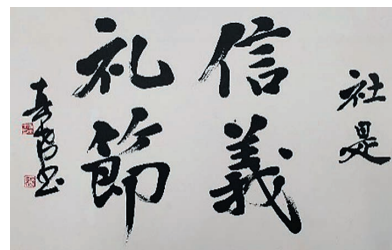 社是
信義
礼節